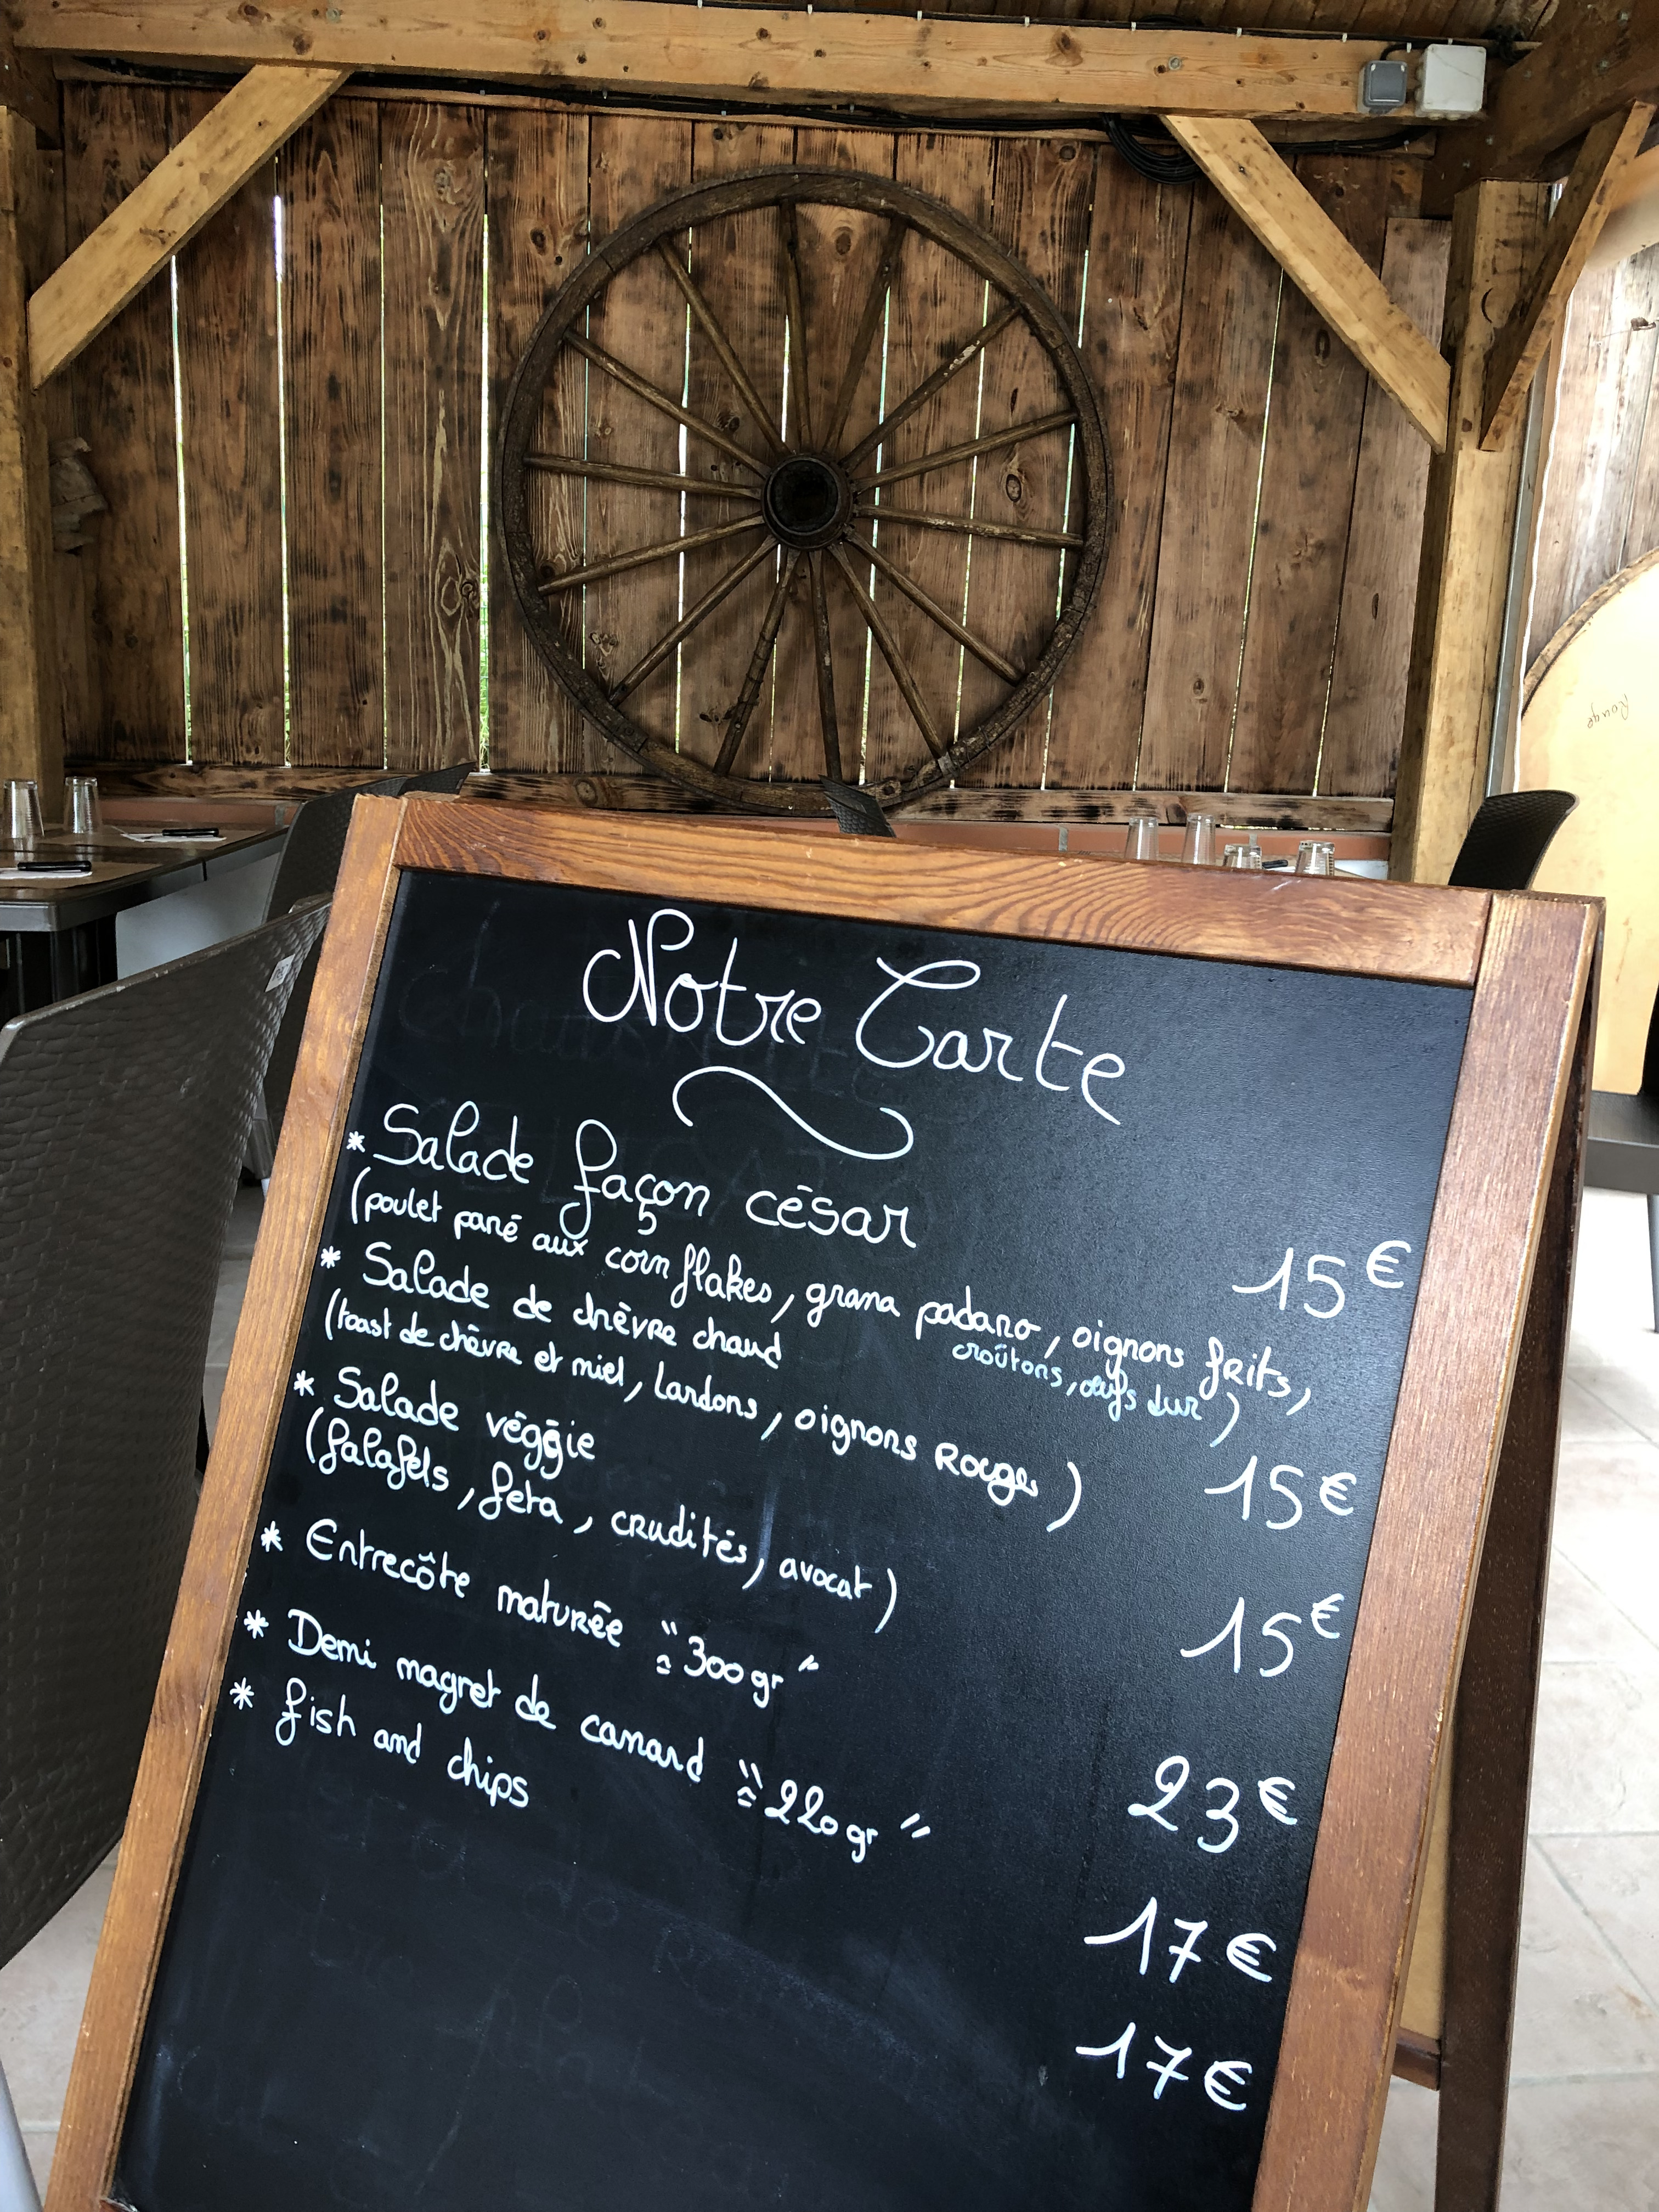 Rouge
Notre Carte
* Salade façon césar 15€
(poulet pané aux corn flakes, grana padano, oignons frits,
croûtons, œufs dur)
* Salade de chèvre chaud 15€
(toast de chèvre et miel, lardons, oignons Rouges)
* Salade véggie 15€
(falafels, feta, crudités, avocat)
* Entrecôte maturée "≃300gr" 23€
* Demi magret de canard "≃220gr" 17€
* fish and chips 17€